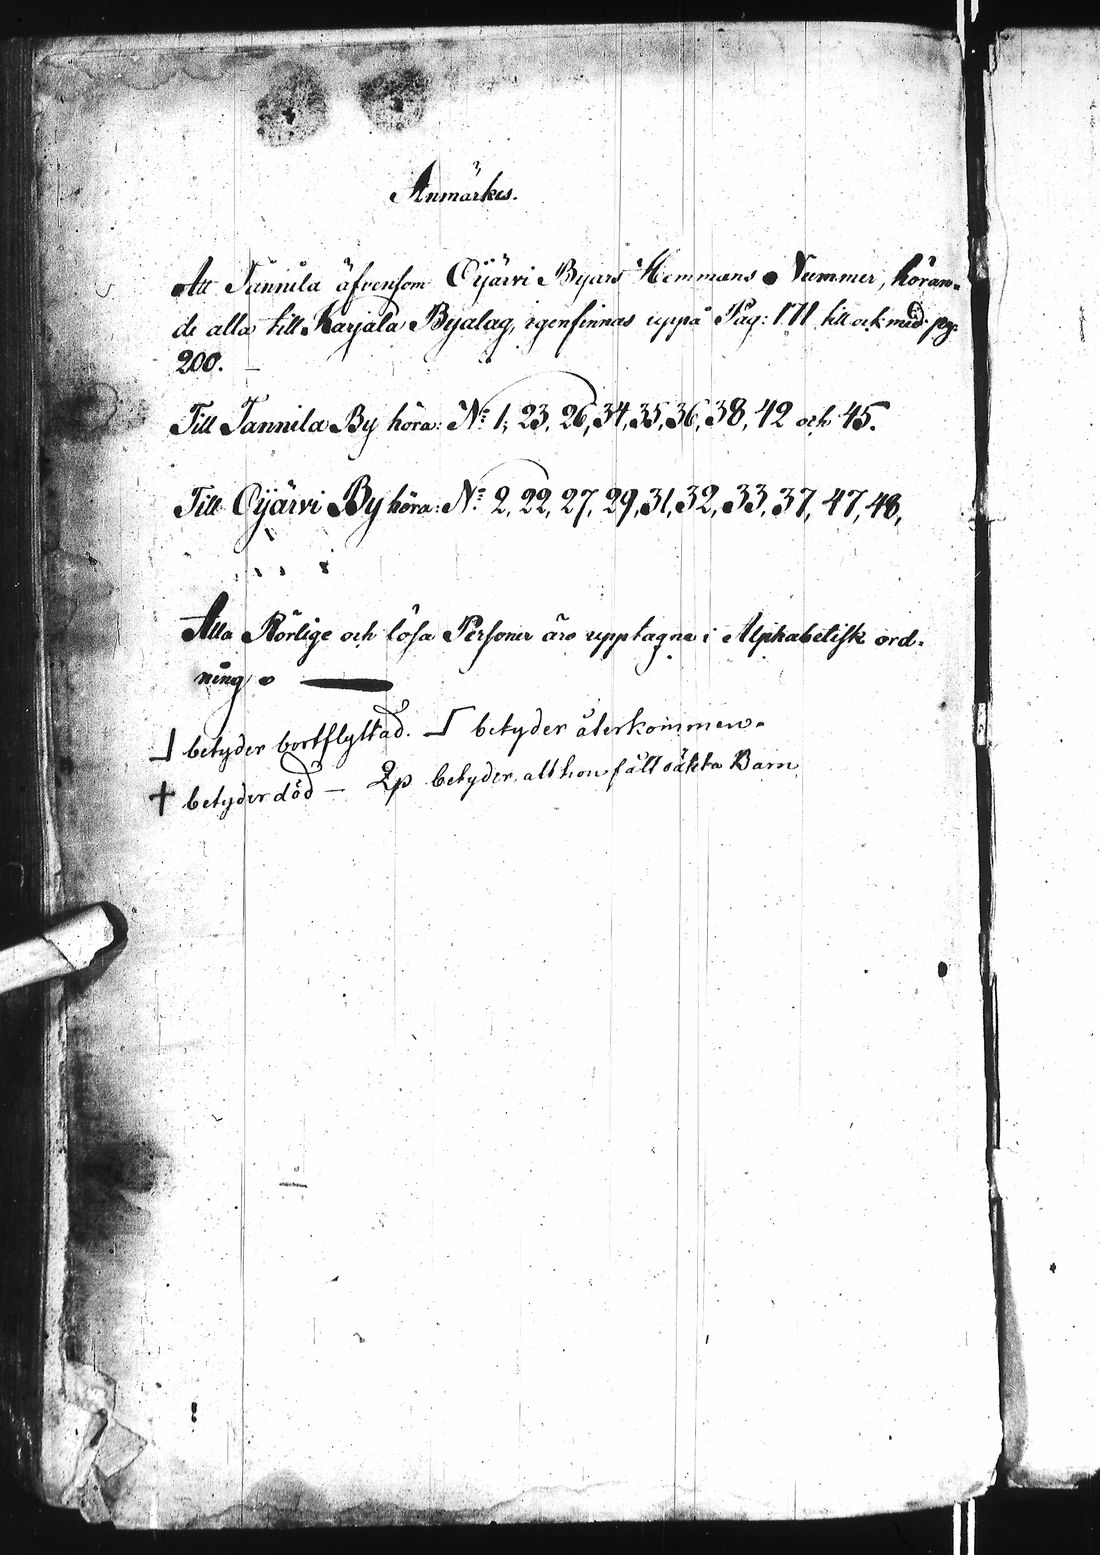 Anmärkes.
Att Tannila äfvensom Oijärvi Byars Hemmans Nummer, höran-
de alla till Karjala Byalag, igenfinnas uppå Pag: 171 till och med pg:
200.
Till Tannila By höra: No: 1, 23, 26, 34, 35, 36, 38, 42 och 45.
Till Oijärvi By höra: No: 2, 22, 27, 29, 31, 32, 33, 37, 47, 48,
Alla Rörlige och lösa Personer äro upptagne i Alphabetisk ord-
ning
⅃ betyder bortflyttad. betyder återkommen
† betyder död — 2p betyder, att hon fått oäkta Barn